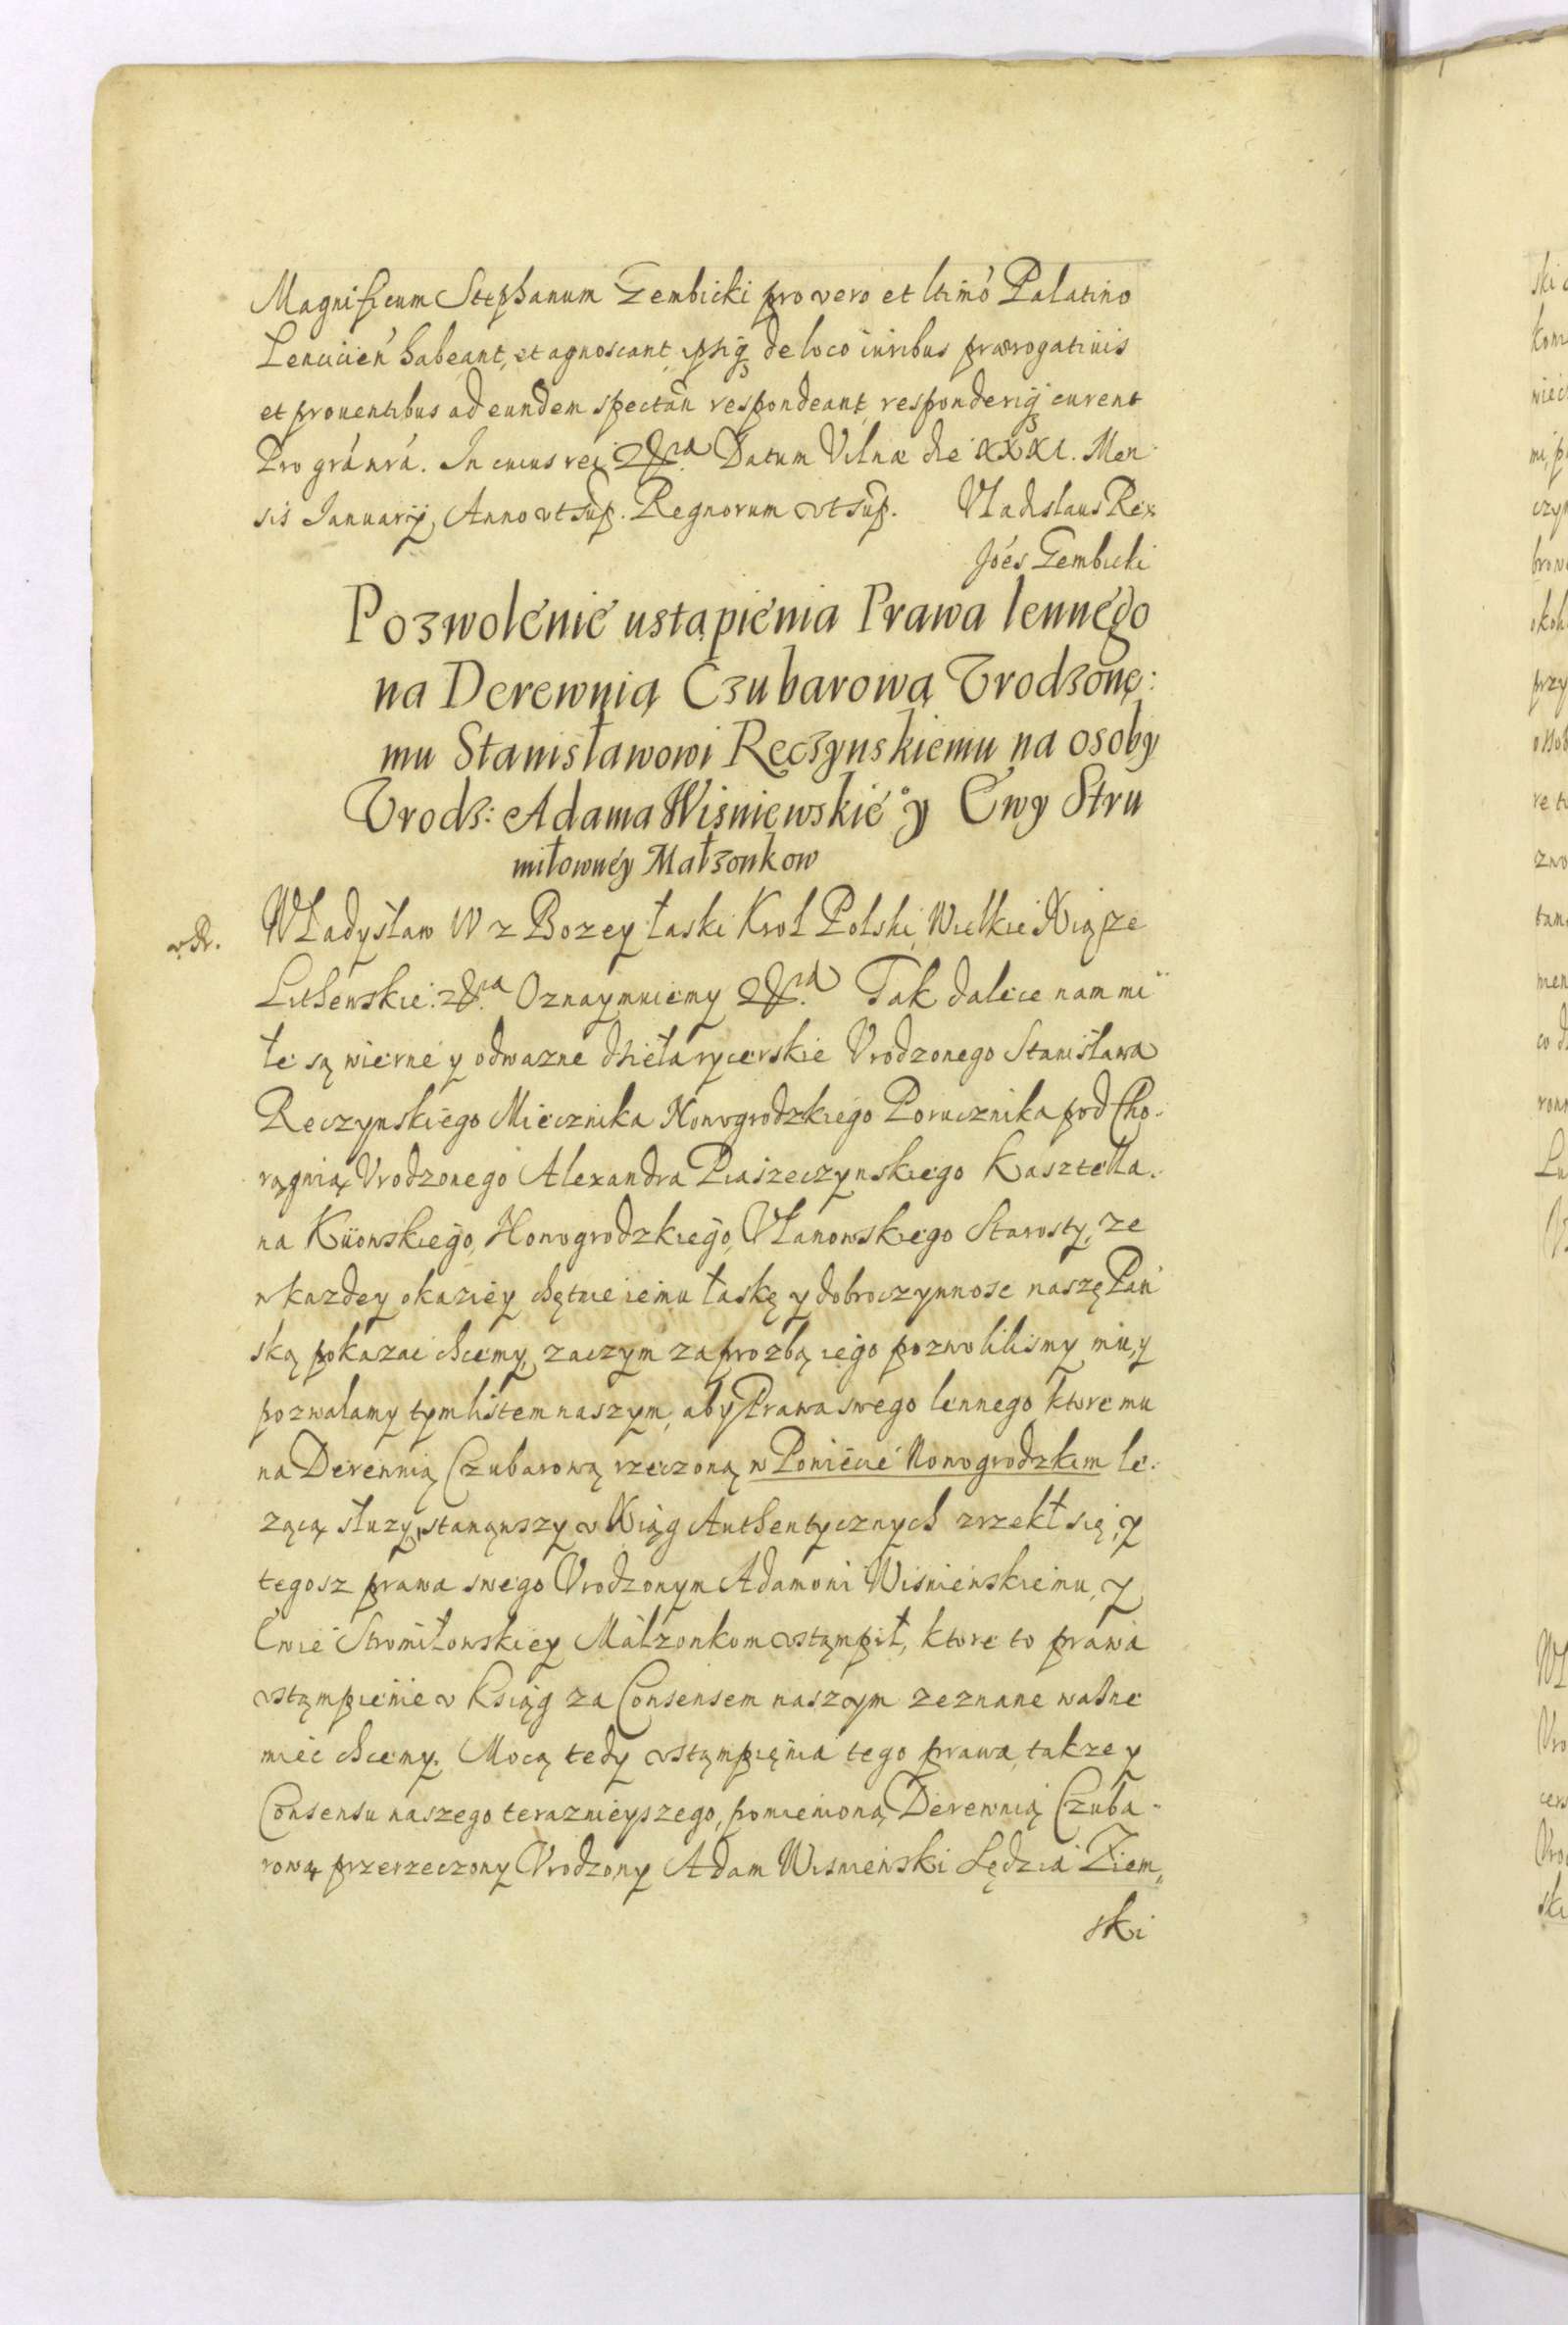 Magnificum Stephanum Gembicki pro vero et ltimo Palatino
Lencicień habeant, et agnoscant ipsiq3 de loco iuribus prærogatiuis
et prouentibus ad eundem spectań respondeant, responderiq3 curent
Pro gra nra. In cuius rei &ca Datum Vilnæ die XXXI. Men
sis Januarij, Anno vt sup. Regnorum vt sup. Vladislaus Rex
Joes Gembicki
Pozwolenie ustąpienia Prawa lennego
na Derewnią Czubarową Vrodzone:
mu Stanisławowi Reczynskiemu na osoby
Vrodz: Adama Wisniewskie° y Ewy Stru
miłowney Małzonkow
Władysław IV z Bozey łaski Krol Polski, Wielkie Xiąze
Lithewskie: &ca Oznaymuiemy &ca Tak dalece nam mi
łe są wierne y odwazne dzieła rycerskie Vrodzonego Stanisława
Reczynskiego Miecznika Nowogrodzkiego Porucznika pod Cho-
rągnią Vrodzonego Alexandra Piaszeczynskiego Kasztella-
na Kijowskiego, Nowogrodzkiego, Vłanowskiego Starosty, ze
w kazdey okaziey chętnie iemu łaskę y dobroczynnosc naszę Pań
ską pokazac chcemy, zaczym za prozbą iego pozwolilismy mu, y
pozwalamy tym listem naszym, aby Prawa swego lennego ktore mu
na Derewnią Czubarową rzeczoną w Powiecie Nowogrodzkim le-
zącą słuzy, stanąwszy v Xiąg Authentycznych zrzekł się, y
tegosz prawa swego Vrodzonym Adamowi Wisniewskiemu, y
Ewie Stromiłowskiey Małzonkom vstąmpił, ktore to prawa
vstąmpienie v Ksiąg za Consensem naszym zeznane wazne
miec chcemy. Mocą tedy vstąmpięnia tego prawa, takze y
Consensu naszego teraznieyszego, pomienioną Derewnią Czuba-
rową przerzeczony Vrodzony Adam Wisniewski Sędzia Ziem,,
ski